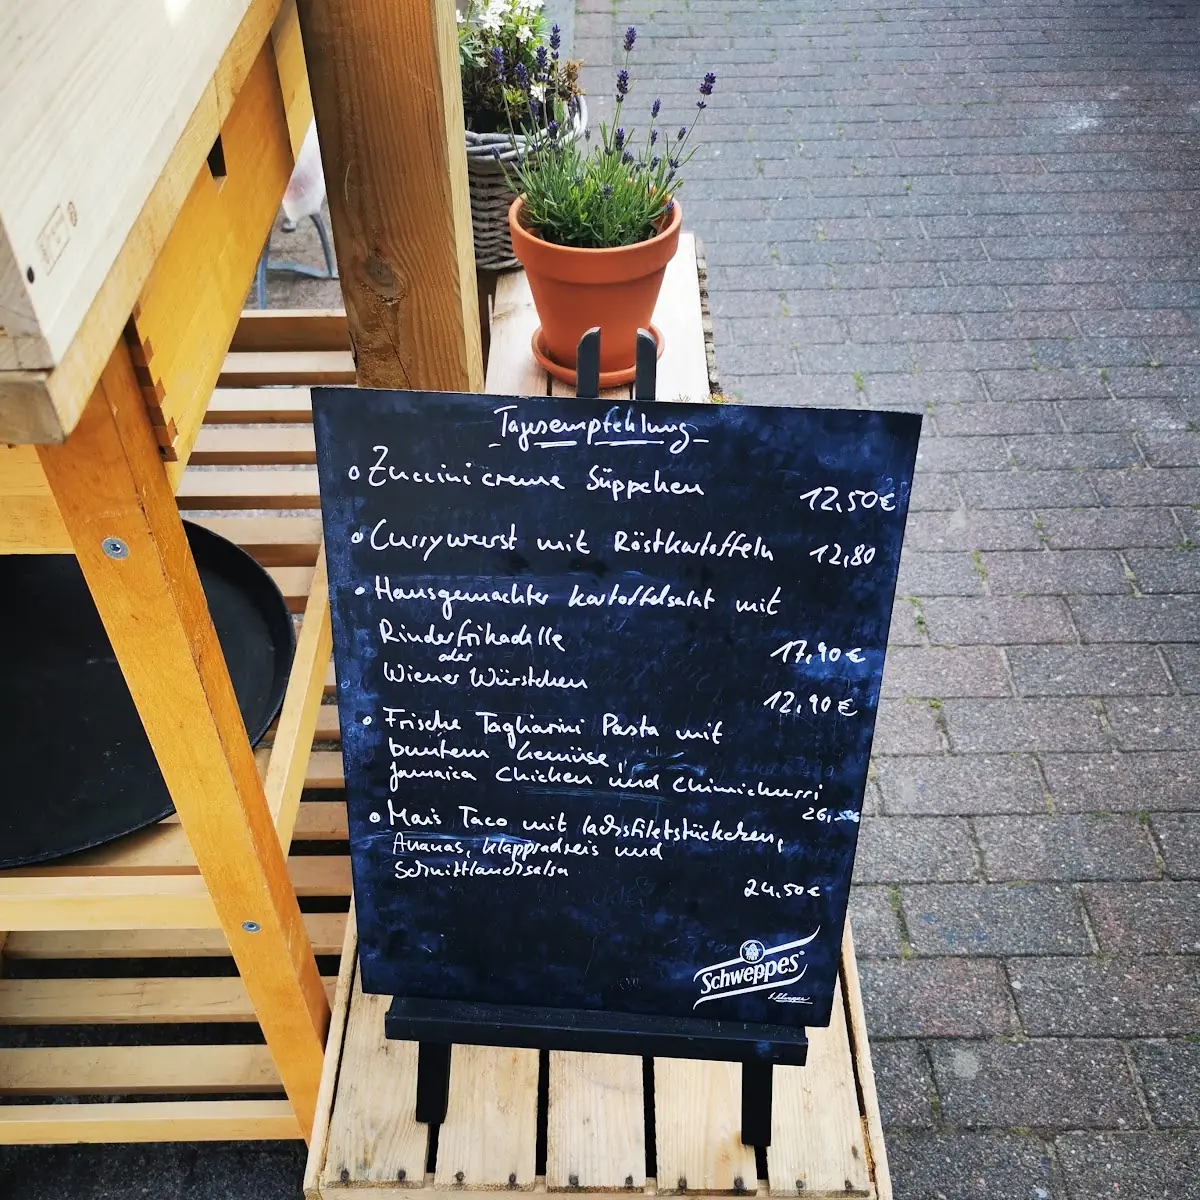 Tagesempfehlung
Zuccinicreme Süppchen 12,50€
Currywurst mit Röstkartoffeln 12,80
Hausgemachter Kartoffelsalat mit
Rinderfrikadelle 17,90€
oder
Wiener Würstchen 12,90€
Frische Tagliarini Pasta mit
buntem Gemüse,
Jamaica Chicken und Chimichurri
26,50€
Mais Taco mit Lachsfiletstückchen,
Ananas, Wappradieis und
Schnittlauchsalsa
24,50€
Schweppes